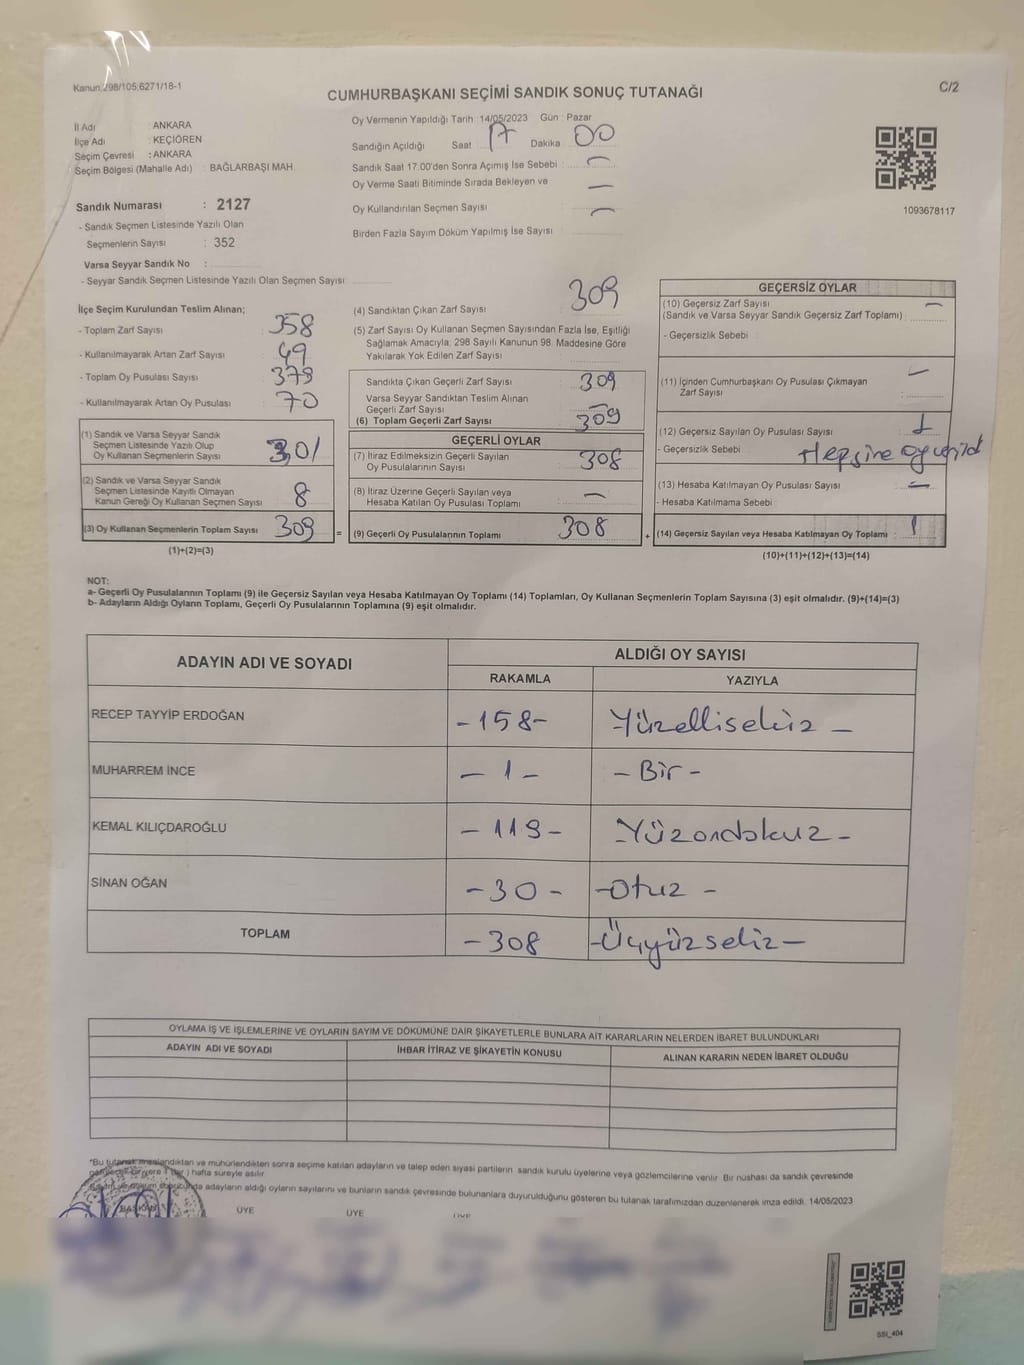 Kanun:298/105;6271/18-1
C/2
CUMHURBAŞKANI SEÇİMİ SANDIK SONUÇ TUTANAĞI
İl Adı : ANKARA
İlçe Adı : KEÇİÖREN
Seçim Çevresi : ANKARA
Seçim Bölgesi (Mahalle Adı) : BAĞLARBAŞI MAH.
Sandık Numarası : 2127
- Sandık Seçmen Listesinde Yazılı Olan
Seçmenlerin Sayısı : 352
Varsa Seyyar Sandık No :
- Seyyar Sandık Seçmen Listesinde Yazılı Olan Seçmen Sayısı
Oy Vermenin Yapıldığı Tarih : 14/05/2023 Gün : Pazar
Sandığın Açıldığı Saat 17 Dakika 00
Sandık Saat 17:00'den Sonra Açımış İse Sebebi : —
Oy Verme Saati Bitiminde Sırada Bekleyen ve —
Oy Kullandırılan Seçmen Sayısı —
Birden Fazla Sayım Döküm Yapılmış İse Sayısı
1093678117
İlçe Seçim Kurulundan Teslim Alınan;
- Toplam Zarf Sayısı 358
- Kullanılmayarak Artan Zarf Sayısı 49
- Toplam Oy Pusulası Sayısı 379
- Kullanılmayarak Artan Oy Pusulası 70
(1) Sandık ve Varsa Seyyar Sandık
Seçmen Listesinde Yazılı Olup
Oy Kullanan Seçmenlerin Sayısı 301
(2) Sandık ve Varsa Seyyar Sandık
Seçmen Listesinde Kayıtlı Olmayan
Kanun Gereği Oy Kullanan Seçmen Sayısı 8
(3) Oy Kullanan Seçmenlerin Toplam Sayısı 309 =
(1)+(2)=(3)
(4) Sandıktan Çıkan Zarf Sayısı 309
(5) Zarf Sayısı Oy Kullanan Seçmen Sayısından Fazla İse, Eşitliği
Sağlamak Amacıyla; 298 Sayılı Kanunun 98. Maddesine Göre
Yakılarak Yok Edilen Zarf Sayısı
Sandıkta Çıkan Geçerli Zarf Sayısı 309
Varsa Seyyar Sandıktan Teslim Alınan
Geçerli Zarf Sayısı —
(6) Toplam Geçerli Zarf Sayısı 309
GEÇERLİ OYLAR
(7) İtiraz Edilmeksizin Geçerli Sayılan
Oy Pusulalarının Sayısı 308
(8) İtiraz Üzerine Geçerli Sayılan veya
Hesaba Katılan Oy Pusulası Toplamı —
(9) Geçerli Oy Pusulalarının Toplamı 308 +
GEÇERSİZ OYLAR
(10) Geçersiz Zarf Sayısı —
(Sandık ve Varsa Seyyar Sandık Geçersiz Zarf Toplamı) :
- Geçersizlik Sebebi :
(11) İçinden Cumhurbaşkanı Oy Pusulası Çıkmayan —
Zarf Sayısı :
(12) Geçersiz Sayılan Oy Pusulası Sayısı 1
- Geçersizlik Sebebi : Hepsine oy verild
(13) Hesaba Katılmayan Oy Pusulası Sayısı —
- Hesaba Katılmama Sebebi :
(14) Geçersiz Sayılan veya Hesaba Katılmayan Oy Toplamı : 1
(10)+(11)+(12)+(13)=(14)
NOT:
a- Geçerli Oy Pusulalarının Toplamı (9) ile Geçersiz Sayılan veya Hesaba Katılmayan Oy Toplamı (14) Toplamları, Oy Kullanan Seçmenlerin Toplam Sayısına (3) eşit olmalıdır. (9)+(14)=(3)
b- Adayların Aldığı Oyların Toplamı, Geçerli Oy Pusulalarının Toplamına (9) eşit olmalıdır.
ADAYIN ADI VE SOYADI ALDIĞI OY SAYISI
RAKAMLA YAZIYLA
RECEP TAYYİP ERDOĞAN -158- -Yüzellisekiz-
MUHARREM İNCE -1- -Bir-
KEMAL KILIÇDAROĞLU -119- -Yüzondokuz-
SİNAN OĞAN -30- -Otuz-
TOPLAM -308 -Üçyüzsekiz-
OYLAMA İŞ VE İŞLEMLERİNE VE OYLARIN SAYIM VE DÖKÜMÜNE DAİR ŞİKAYETLERLE BUNLARA AİT KARARLARIN NELERDEN İBARET BULUNDUKLARI
ADAYIN ADI VE SOYADI İHBAR İTİRAZ VE ŞİKAYETİN KONUSU ALINAN KARARIN NEDEN İBARET OLDUĞU
*Bu tutanak imzalandıktan ve mühürlendikten sonra seçime katılan adayların ve talep eden siyasi partilerin sandık kurulu üyelerine veya gözlemcilerine verilir. Bir nüshası da sandık çevresinde
hafta süreyle asılır.
adayların aldığı oyların sayılarını ve bunların sandık çevresinde bulunanlara duyurulduğunu gösteren bu tutanak tarafımızdan düzenlenerek imza edildi. 14/05/2023
BAŞKAN ÜYE ÜYE ÜYE
SSİ_404